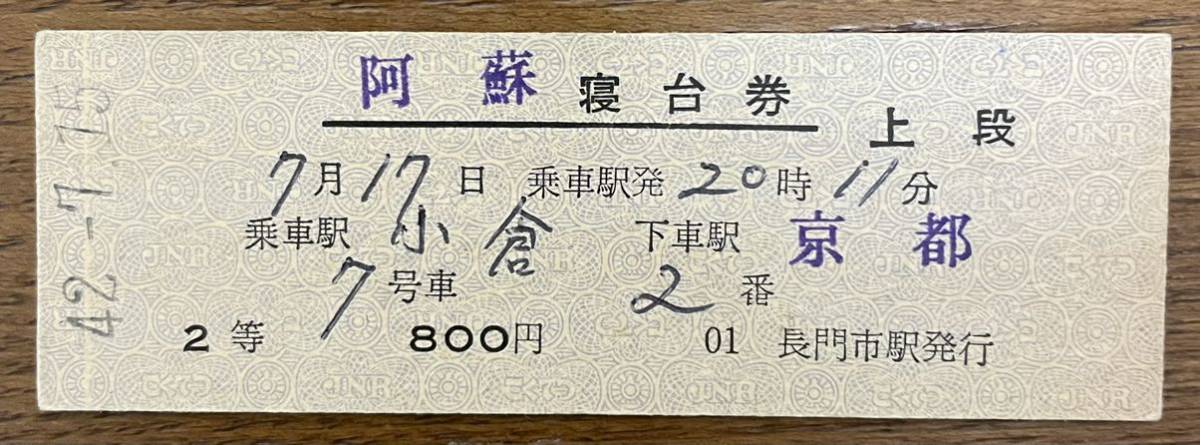 阿蘇 寝台券
上段
7月17日 乗車駅発 20時11分
乗車駅 小倉 下車駅 京都
7号車 2番
2等 800円 01 長門市駅発行
42-7.15